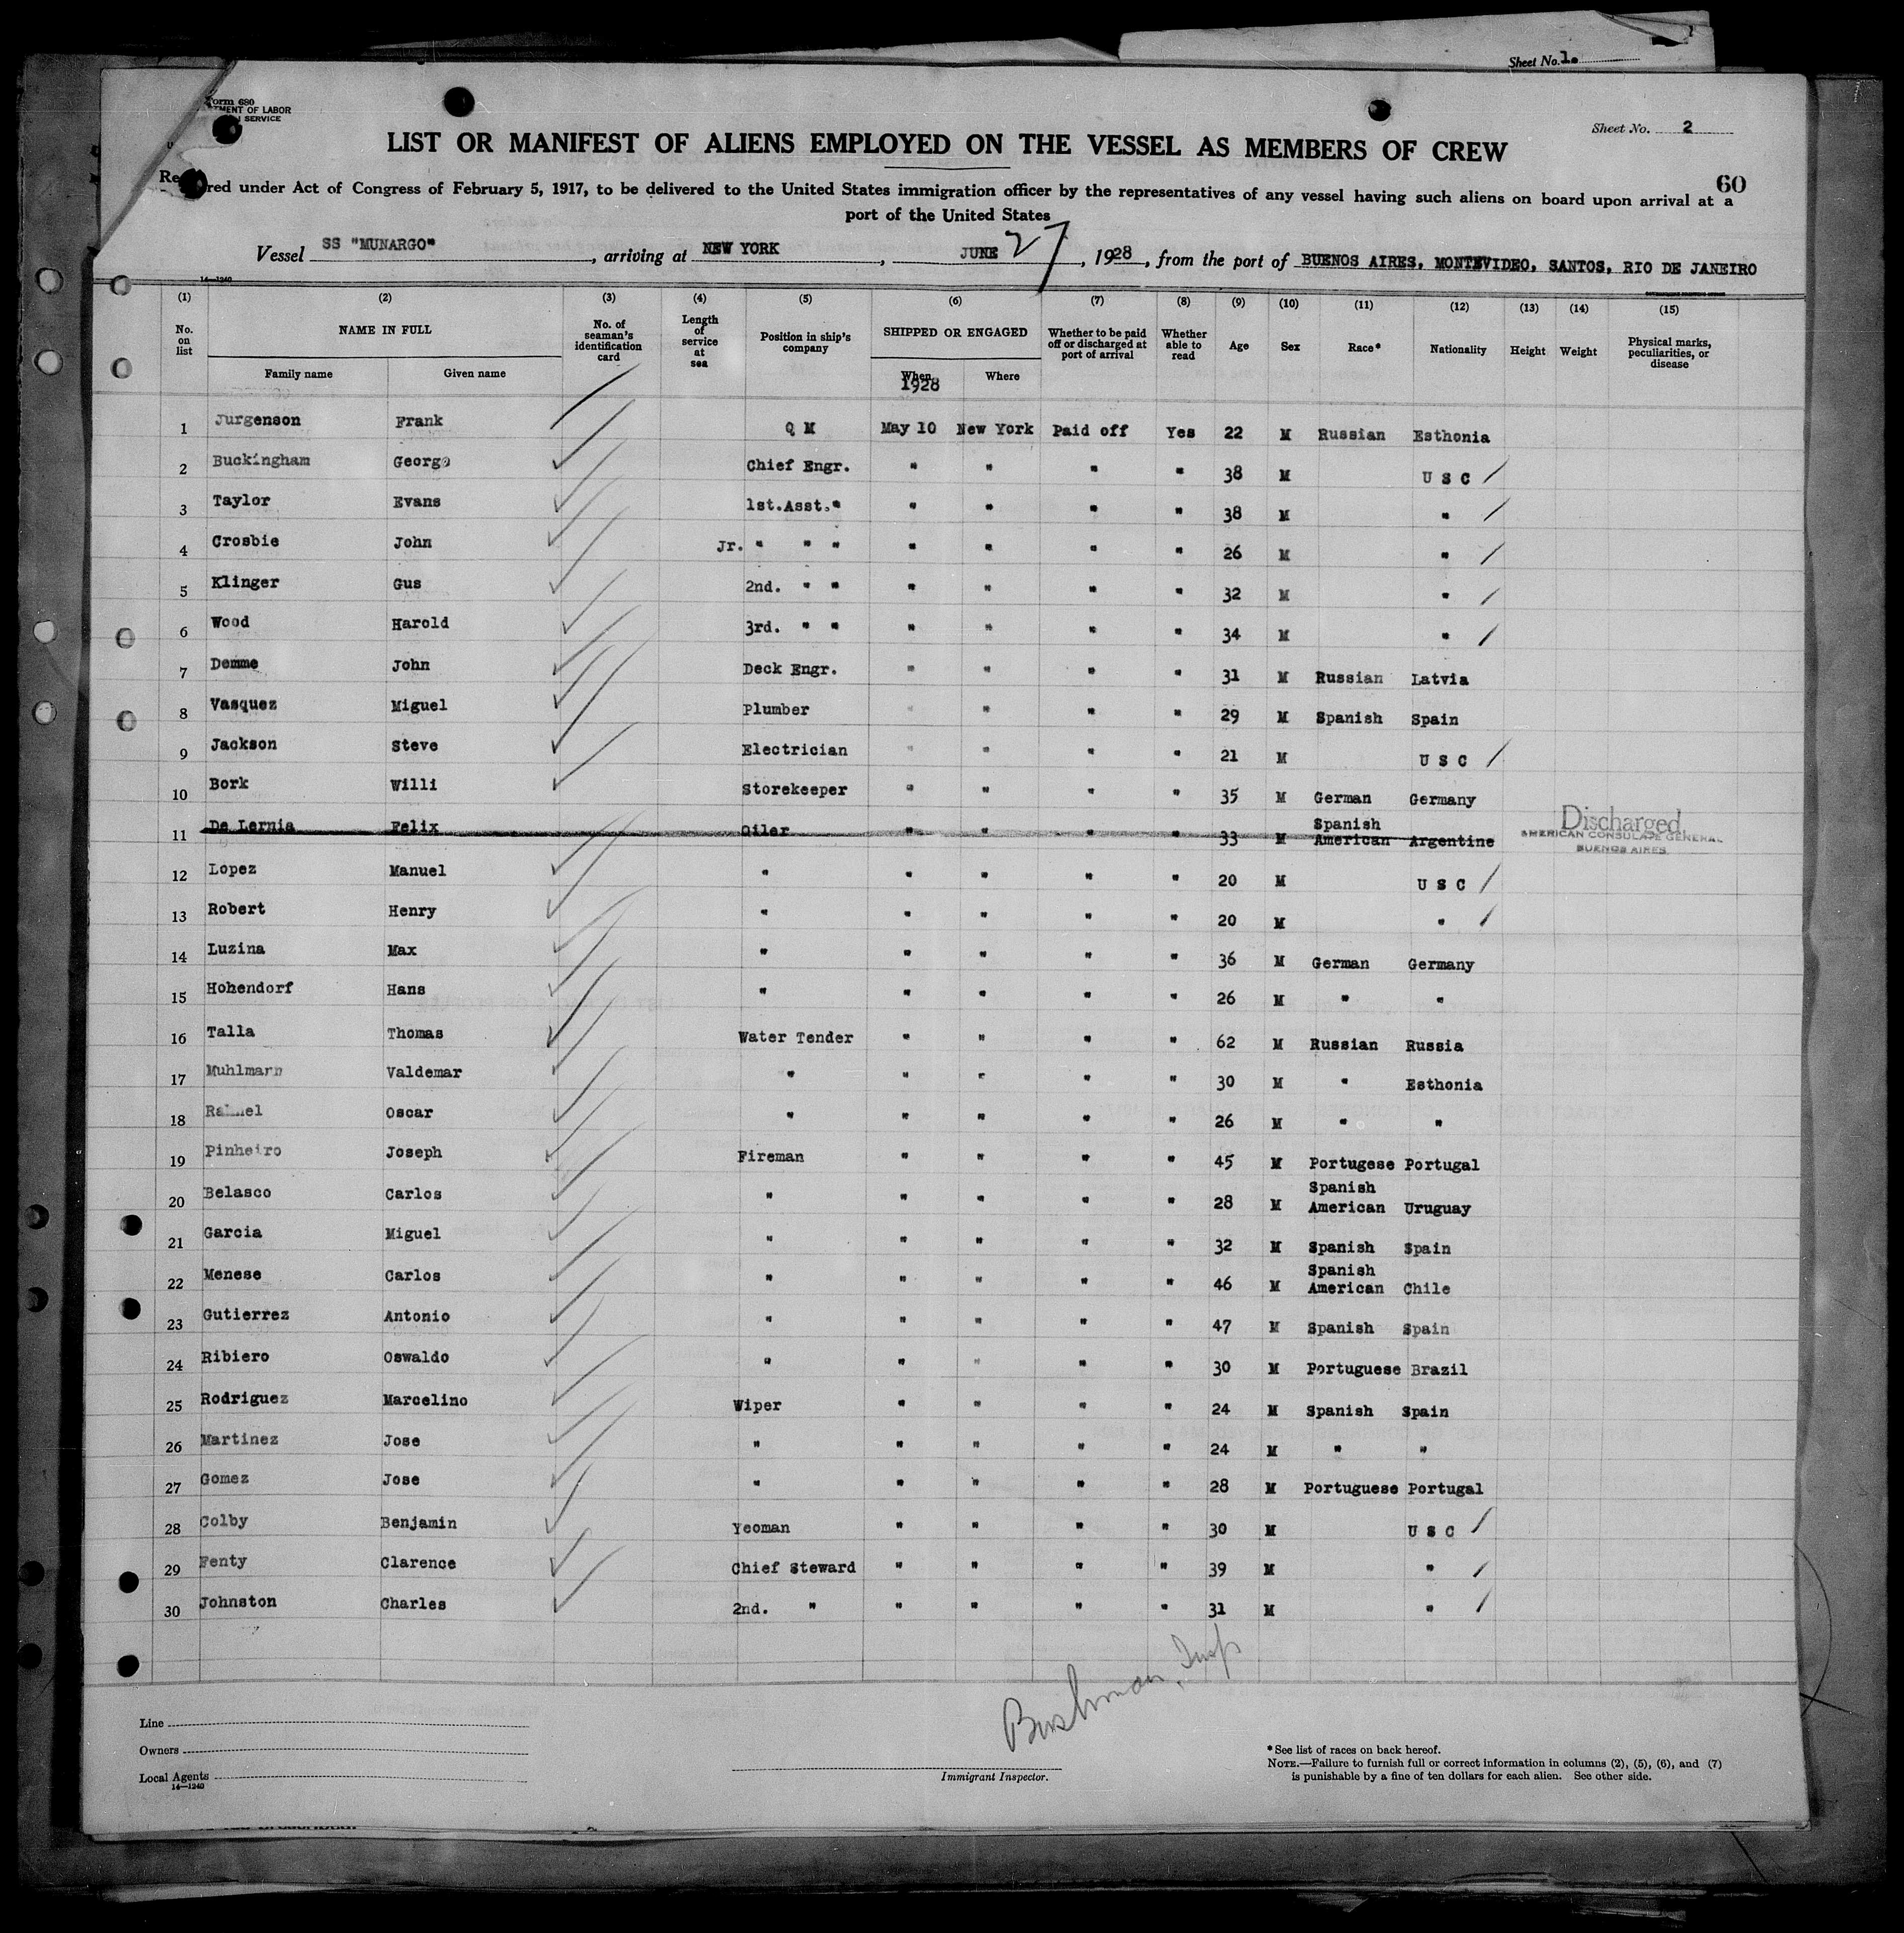 Sheet No. 1.
Form 680
TMENT OF LABOR
SERVICE
Sheet No. 2
LIST OR MANIFEST OF ALIENS EMPLOYED ON THE VESSEL AS MEMBERS OF CREW
60
red under Act of Congress of February 5, 1917, to be delivered to the United States immigration officer by the representatives of any vessel having such aliens on board upon arrival at a
port of the United States
Vessel SS "MUNARGO", arriving at NEW YORK, JUNE 27, 1928, from the port of BUENOS AIRES, MONTEVIDEO, SANTOS, RIO DE JANEIRO
14—1240
(1) (2) (3) (4) (5) (6) (7) (8) (9) (10) (11) (12) (13) (14) (15)
No. on list NAME IN FULL No. of seaman's identification card Length of service at sea Position in ship's company SHIPPED OR ENGAGED Whether to be paid off or discharged at port of arrival Whether able to read Age Sex Race* Nationality Height Weight Physical marks, peculiarities, or disease
Family name Given name When Where
1928
1 Jurgenson Frank Q M May 10 New York Paid off Yes 22 M Russian Esthonia
2 Buckingham George Chief Engr. " " " " 38 M U S C /
3 Taylor Evans 1st.Asst." " " " " 38 M " /
4 Crosbie John Jr. " " " " " " " 26 M " /
5 Klinger Gus 2nd. " " " " " " 32 M " /
6 Wood Harold 3rd. " " " " " " 34 M " /
7 Demme John Deck Engr. " " " " 31 M Russian Latvia
8 Vasquez Miguel Plumber " " " " 29 M Spanish Spain
9 Jackson Steve Electrician " " " " 21 M U S C /
10 Bork Willi Storekeeper " " " " 35 M German Germany
11 De Lernia Felix Oiler " " " " 33 M Spanish American Argentine Discharged
AMERICAN CONSULATE GENERAL
BUENOS AIRES
12 Lopez Manuel " " " " " 20 M U S C /
13 Robert Henry " " " " " 20 M " /
14 Luzina Max " " " " " 36 M German Germany
15 Hohendorf Hans " " " " " 26 M " "
16 Talla Thomas Water Tender " " " " 62 M Russian Russia
17 Muhlmann Valdemar " " " " " 30 M " Esthonia
18 Oscar " " " " " 26 M " "
19 Pinheiro Joseph Fireman " " " " 45 M Portugese Portugal
20 Belasco Carlos " " " " " 28 M Spanish American Uruguay
21 Garcia Miguel " " " " " 32 M Spanish Spain
22 Menese Carlos " " " " " 46 M Spanish American Chile
23 Gutierrez Antonio " " " " " 47 M Spanish Spain
24 Ribiero Oswaldo " " " " " 30 M Portuguese Brazil
25 Rodriguez Marcelino Wiper " " " " 24 M Spanish Spain
26 Martinez Jose " " " " " 24 M " "
27 Gomez Jose " " " " " 28 M Portuguese Portugal
28 Colby Benjamin Yeoman " " " " 30 M U S C /
29 Fenty Clarence Chief Steward " " " " 39 M " /
30 Johnston Charles 2nd. " " " " " 31 M " /
Bushman, Insp
Line
Owners
Local Agents
14—1240
Immigrant Inspector.
*See list of races on back hereof.
NOTE.—Failure to furnish full or correct information in columns (2), (5), (6), and (7)
is punishable by a fine of ten dollars for each alien. See other side.